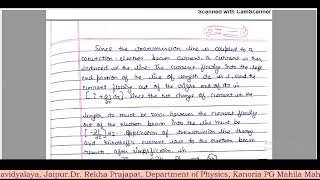 Scanned with CamScanner
Since the transmission line is coupled to a
convection-electron beam current, a current is then
induced in the line. The current flowing into the left
end portion of the line of length dz is i, and the
current flowing out of the right end of dz is
[i + ∂i/∂z dz]. Since the net change of current in the
length dz must be zero, however the current flowing
out of the electron beam into the line must be
[-∂i/∂z]dz. Application of transmission line theory
and Kirchoff's current law to the electron beam
results, after simplification, in
avidyalaya, Jaipur.Dr. Rekha Prajapat, Department of Physics, Kanoria PG Mahila Mah